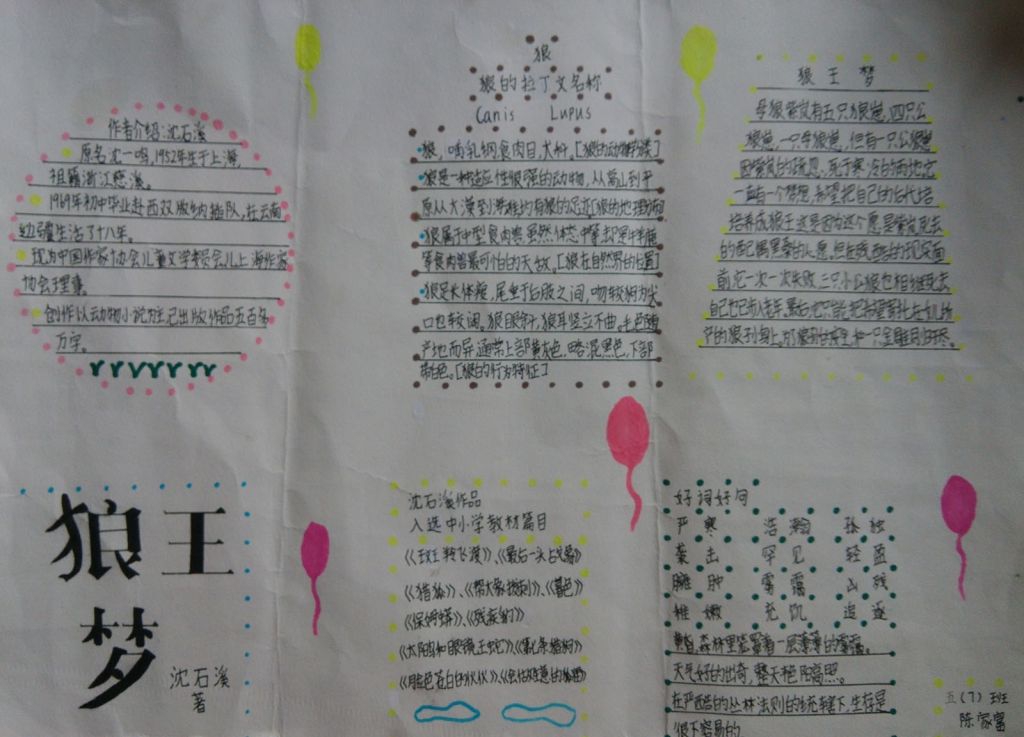 作者介绍:沈石溪
原名沈一鸣,1952年生于上海,
祖籍浙江慈溪。
1969年初中毕业赴西双版纳插队,在云南
幼疆生活了十八年。
现为中国作家协会儿童文学委员会上海作家
协会理事。
创作以动物小说为主,已出版作品五百多
万字。
狼
狼的拉丁文名称
Canis Lupus
狼,哺乳纲食肉目,犬科。[狼的动物学
狼是一种适应性很强的动物,从高山到平
原从大漠到 均有狼的足迹[狼的地理
狼属于中型食肉兽虽然体态中等却是
等食肉兽最可怕的天敌。[狼在自然界的位置]
狼足长体瘦,尾垂于后肢之间,吻较狗为尖
口也较阔。狼眼斜,狼耳竖立不曲。毛色随
产地而异通常上部黄灰色,略混黑色,下部
带白色。[狼的行为特征]
狼王梦
母狼紫岚有五只狼崽,四只公
狼崽,一只母狼崽,但有一只公狼崽
因紫岚的疏忽,死于寒冷的雨地它
一直有一个梦想,希望把自己的后代培
培养成狼王这是因为这个愿是紫岚死去
的配偶黑桑的心愿,但在残酷的现实面
前它一次一次失败,三只小公狼也相继死去
自己也已步入老年,最后,它只能把希望寄托在女儿所
产的狼孙身上。为
狼王
梦
沈石溪
著
沈石溪作品
入选中小学教材篇目
《斑羚飞渡》、《最后一头战象》
《猎狐》、《 》、《暮色》
《保姆蟒》、《残狼 》
《太阳鸟和眼镜王蛇》、《第七条猎狗》
好词好句
严寒 浩瀚 孤独
袭击 罕见 轻盈
臃肿 雾霭 凶残
稚嫩 充饥 追逐
森林里笼罩着一层薄薄的雾霭。
天气好的出奇,整天艳阳高照。
在严酷的丛林法则的统辖下,生存是
很不容易的
五(7)班
陈家富